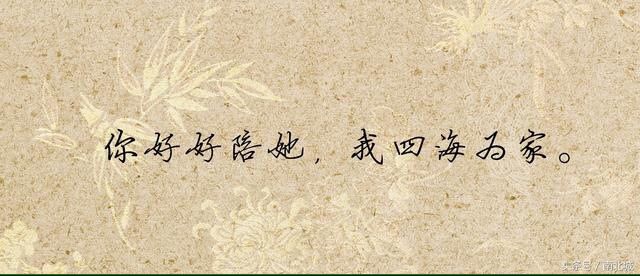 你好好陪她，我四海为家。
头条号/南北城